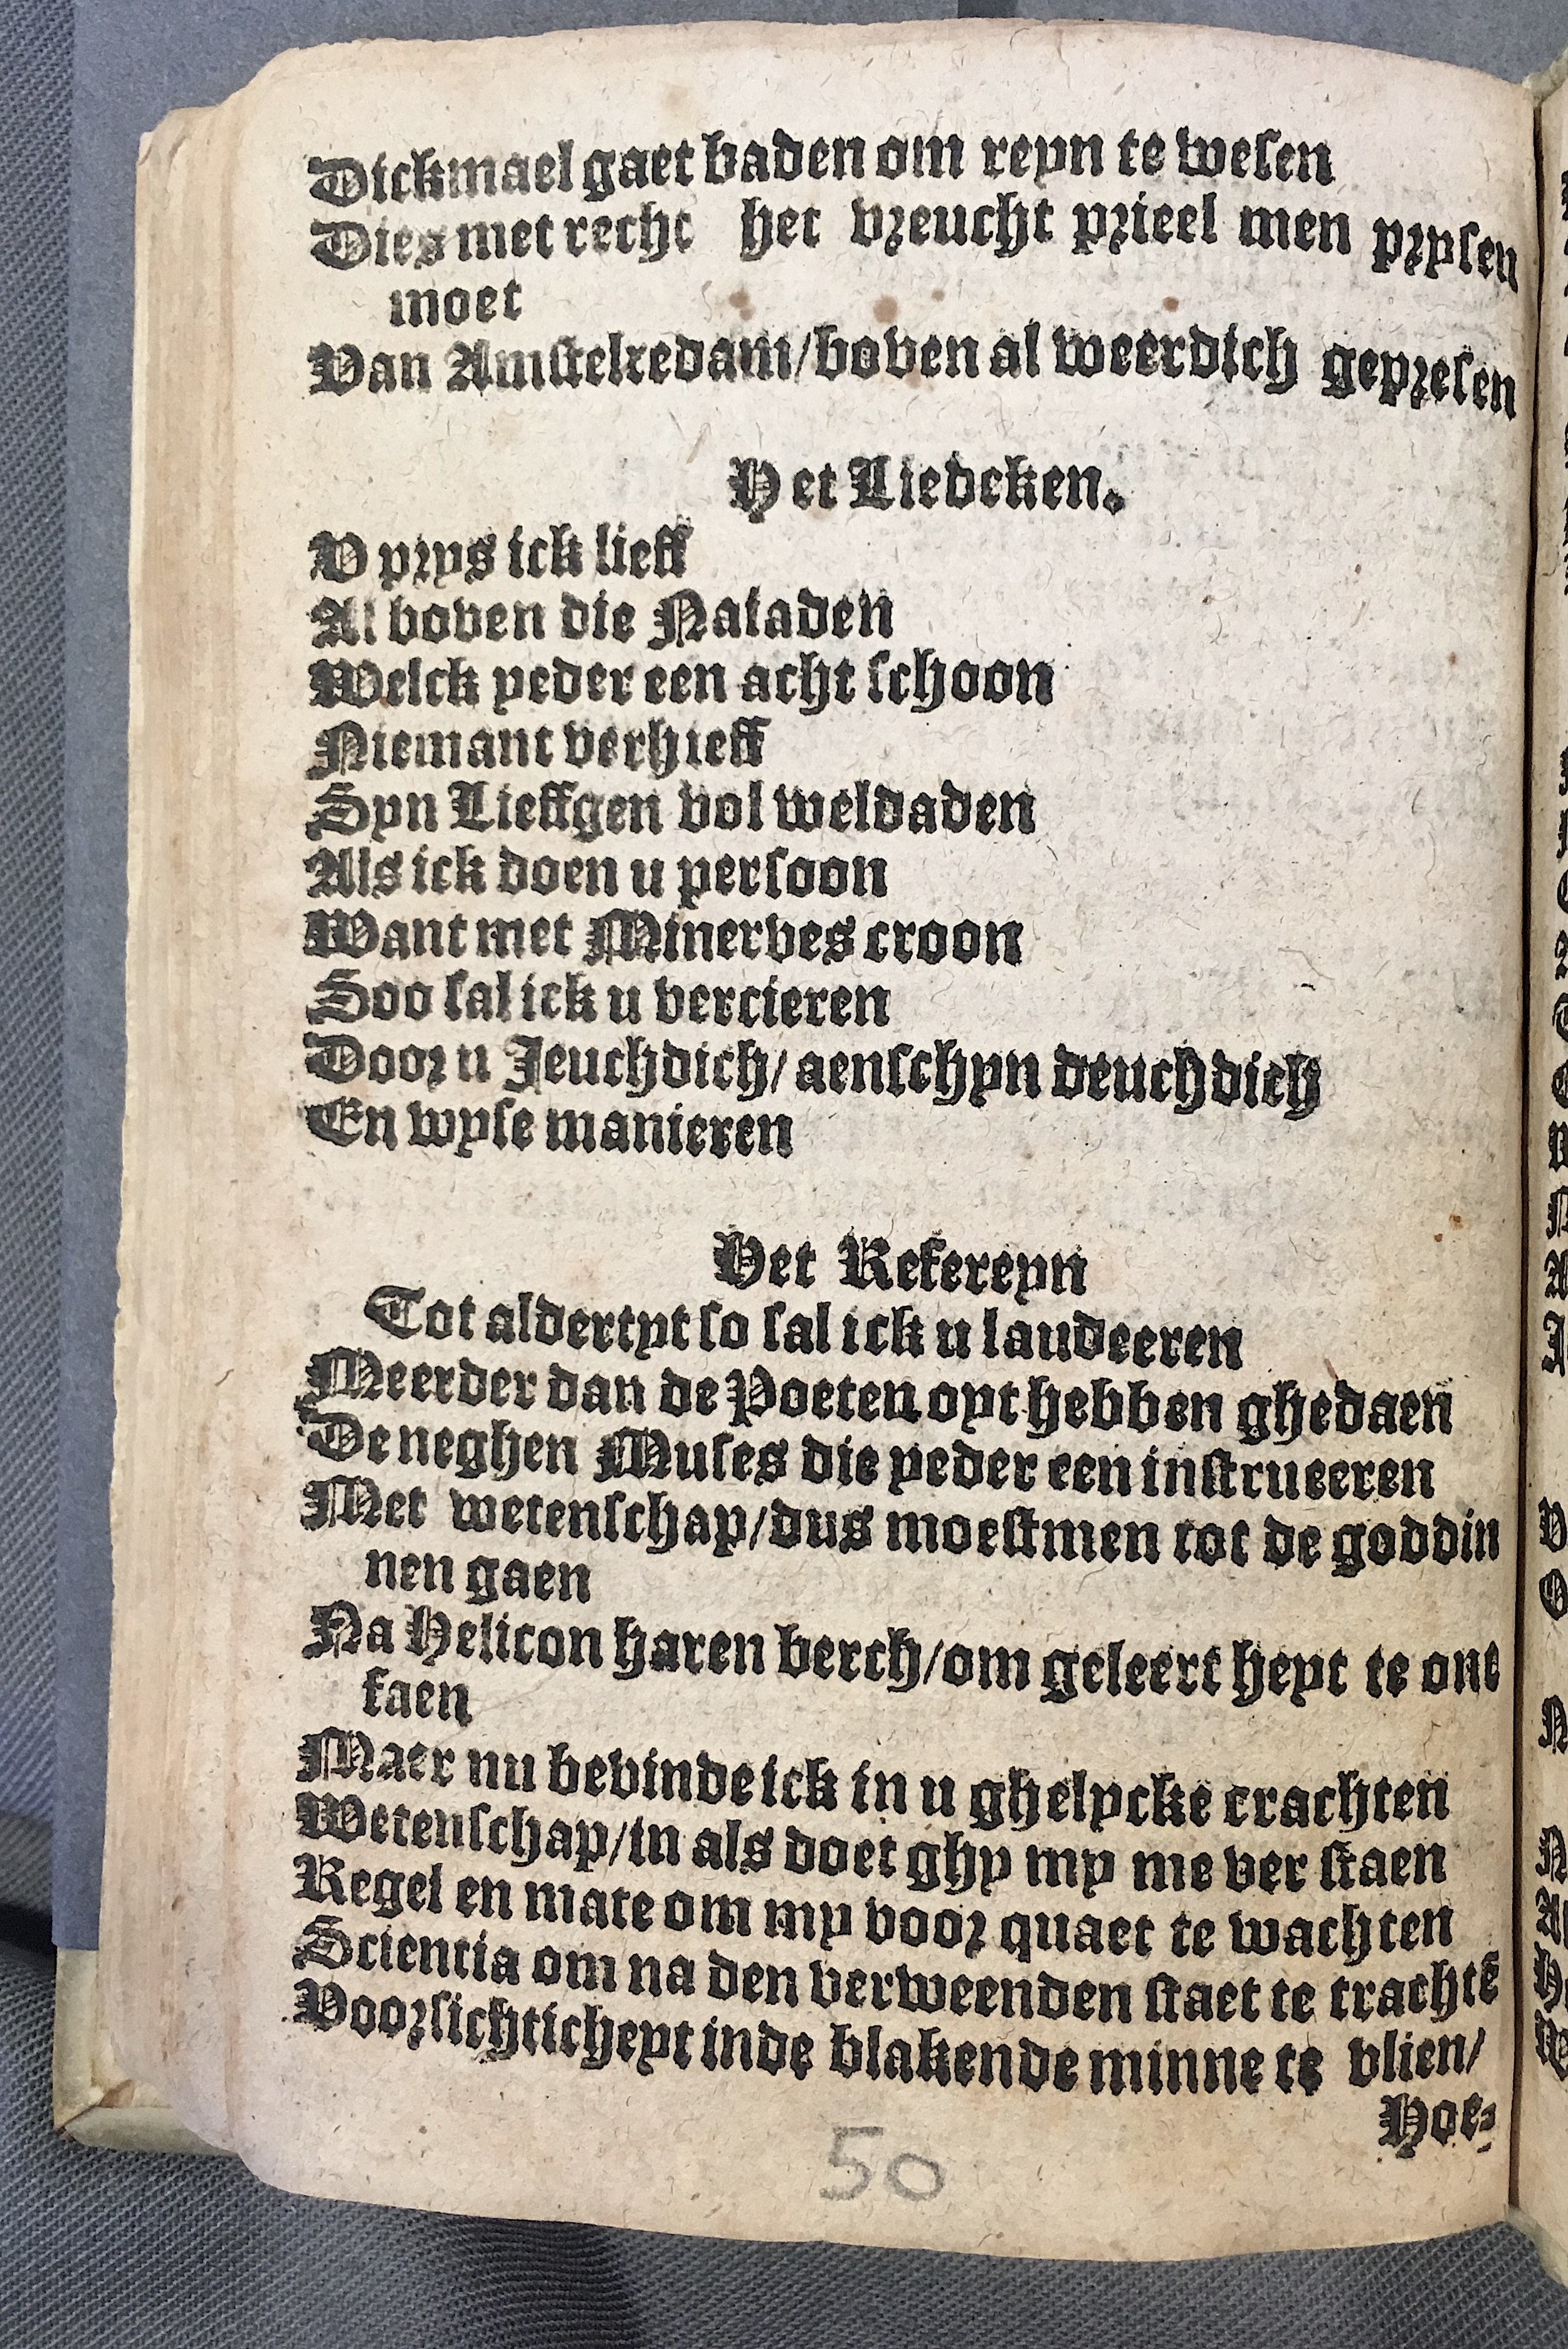 Dickmael gaet baden om reyn te wesen
Dies met recht het vreucht prieel men prysen
moet
Van Amstelredam/boven al weerdich gepresen
Het Liedeken.
V prys ick lieff
Al boven die Naiaden
Welck yeder een acht schoon
Niemant verhieff
Syn Lieffgen vol weldaden
Als ick doen u persoon
Want met Minerves croon
Soo sal ick u vercieren
Door u Jeuchdich/aenschyn deuchdich
En wyse manieren
Het Refereyn
Tot aldertyt so sal ick u laudeeren
Meerder dan de Poeten oyt hebben ghedaen
De neghen Muses die yeder een instrueeren
Met wetenschap/dus moestmen tot de goddin
nen gaen
Na Helicon haren berch/om geleert heyt te ont
faen
Maer nu bevinde ick in u ghelycke crachten
Wetenschap/in als doet ghy my me ver staen
Regel en mate om my voor quaet te wachten
Scientia om na den verweenden staet te trachtē
Voorsichticheyt inde blakende minne te vlien/
Hoe-
50